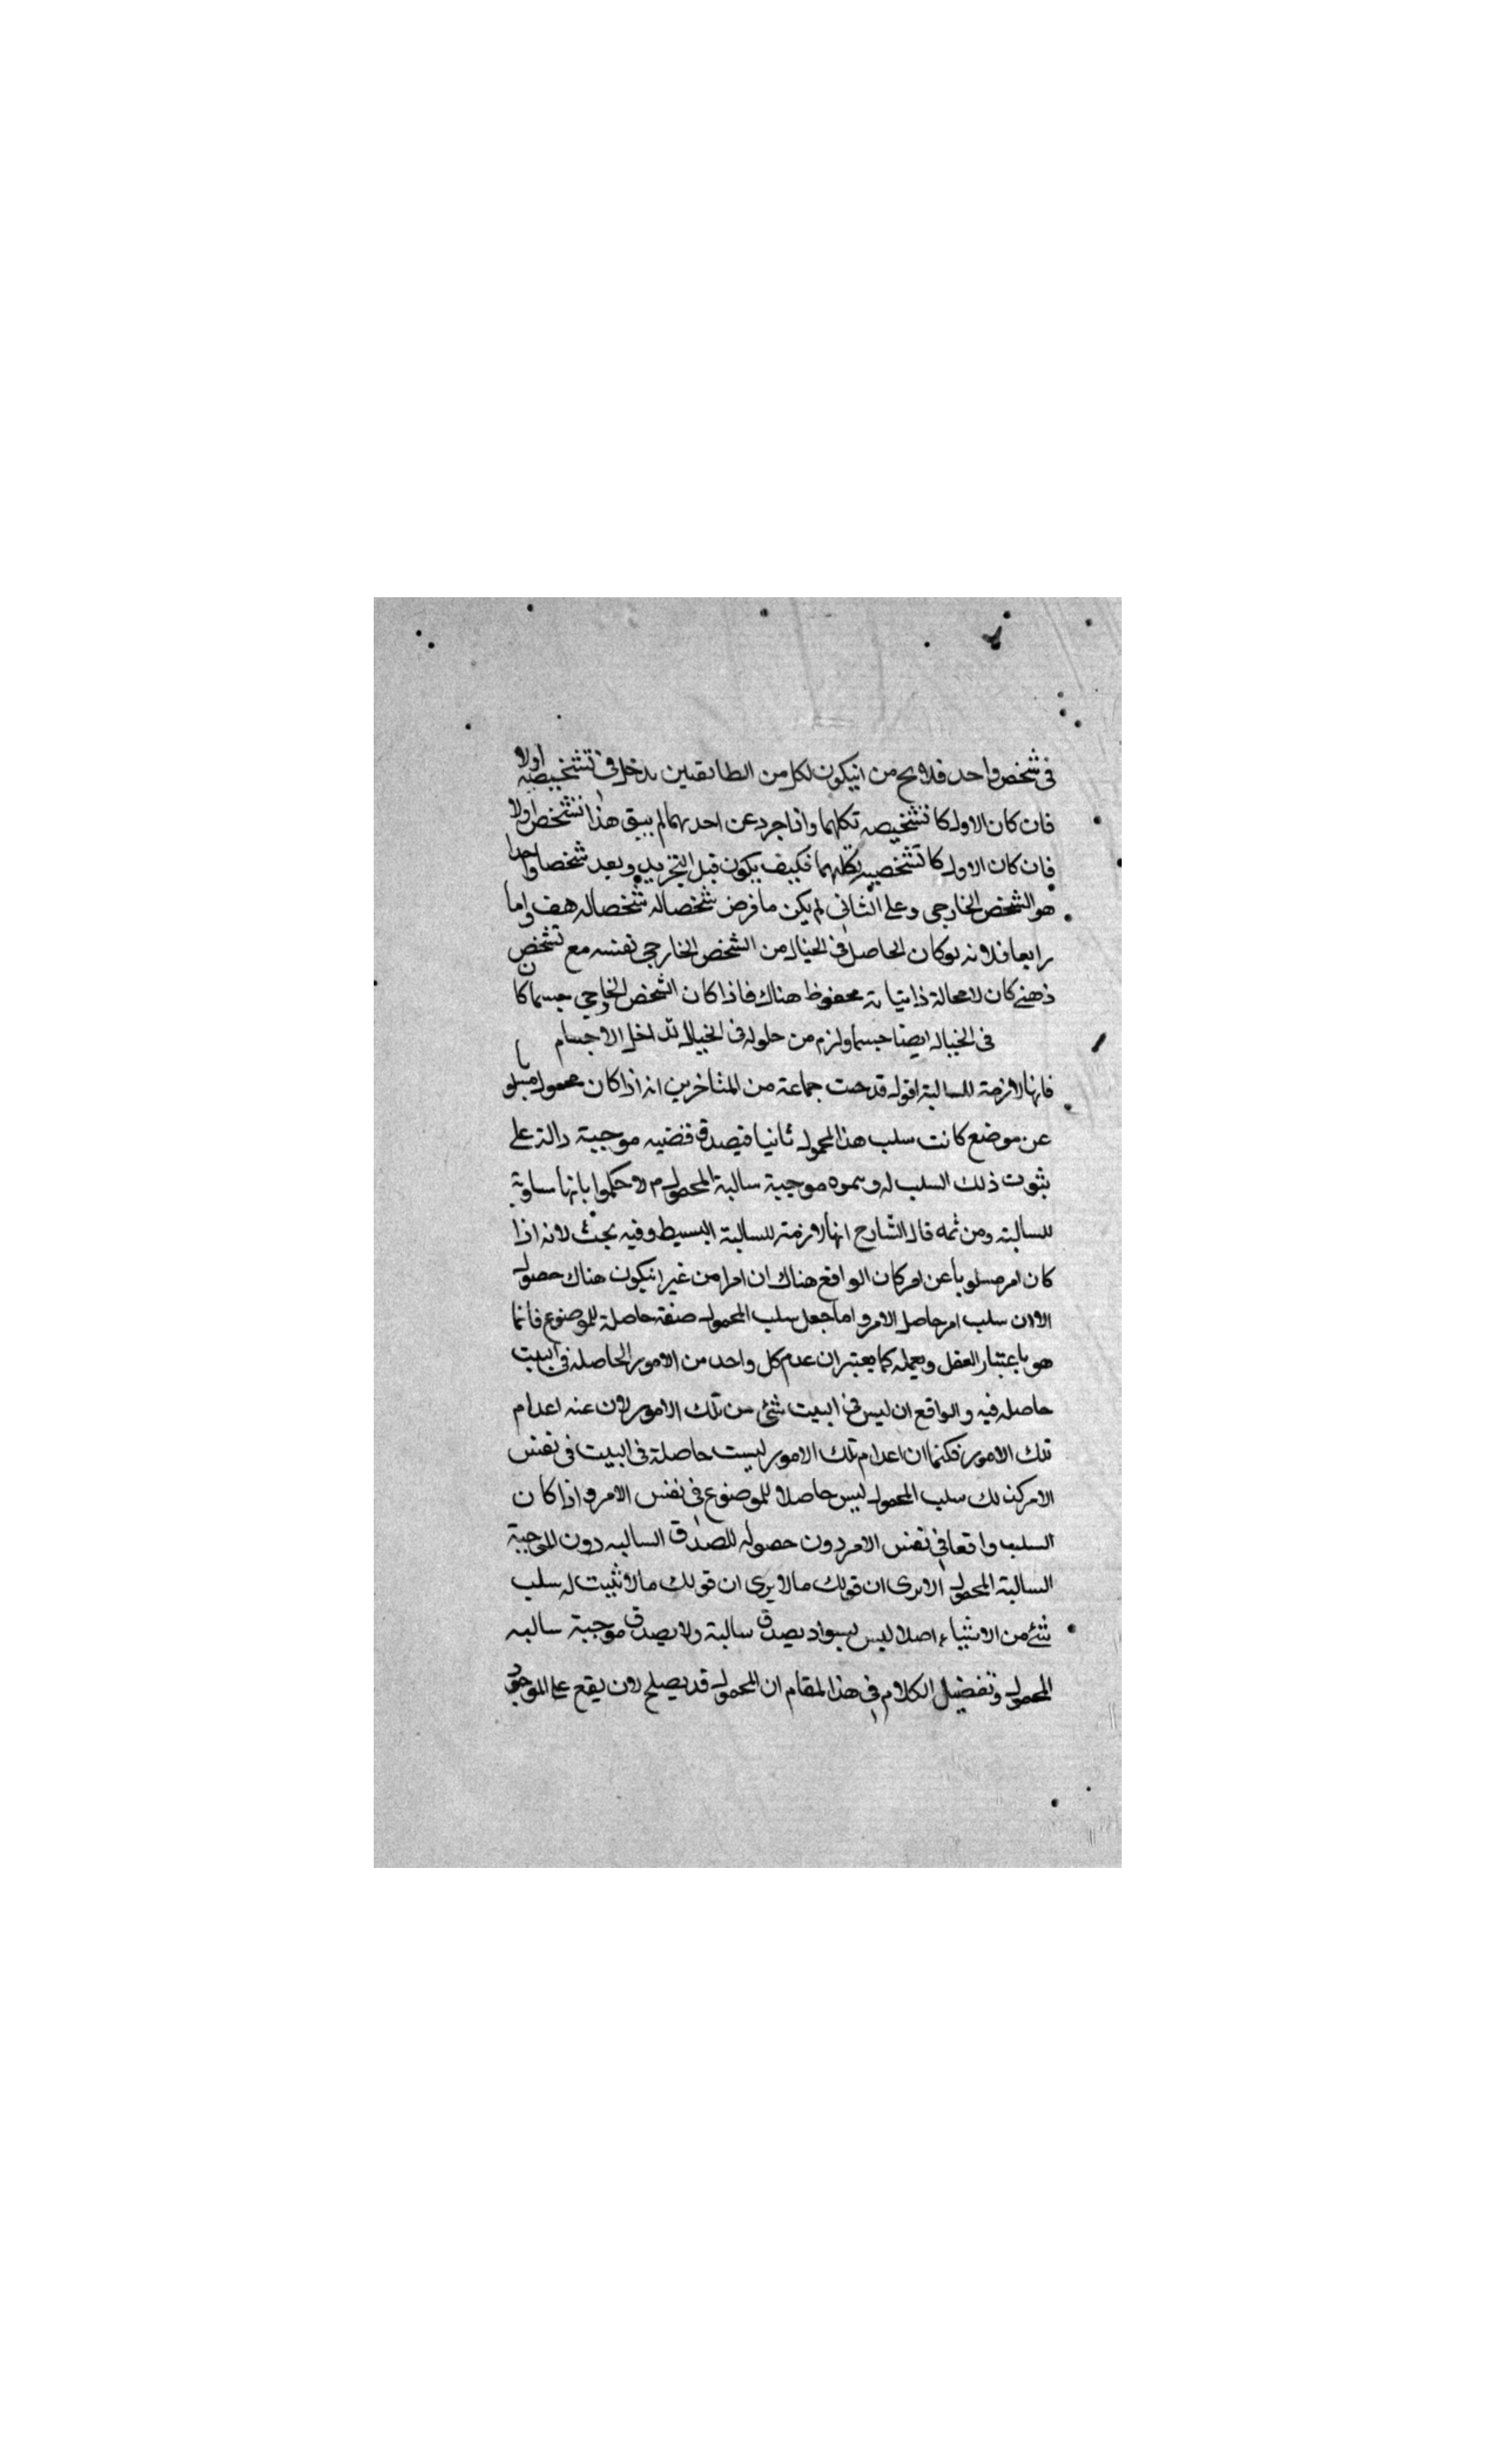 فى شخص واحد فلا يخ من انيكون لكل من الطائفتين مدخل فى تشخيصه اولا
فان كان الاول كا تشخيصه تكلهما واذا جرد عن احديهما لم يبق هذا تشخص اولا
فان كان الاول كا تشخصيه بكلهما فكيف يكون قبل التجريد وبعد شخصا واحدا
هو الشخص الخارجى وعلى الثانى لم يكن ما فرض شخصاله شخصاله هف واما
رابعا فلانه لوكان الحاصل فى الخيال من الشخص الخارجى نفسه مع تشخص
ذهنى كان لامحالة ذاتياته محفوظ هناك فاذا كان الشخص الخارجى جسما كان
فى الخيال ايضا جسما ولزم من حلوله فى الخيال تداخل الاجسام
فانها لازمة للسالبة اقول قد جماعة من المتأخرين انه اذا كان محمول مسلوبا
عن موضع كانت سلب هذا المحمول ثانيا فيصدق قضيه موجبة دالة على
ثبوت ذلك السلب له وسموه موجبة سالبة المحمول م لا حكموا بانها ساوية
للسالبة ومن ثمه قال الشارح انها لازمة للسالبة البسيط وفيه بحث لانه اذا
كان امر مسلوبا عن امر كان الواقع هناك ان امرا من غير انيكون هناك حصول
الاان سلب امر حاصل الامر واما جعل سلب المحمول صفة حاصلة للموضوع فانما
هو باعتبار العقل ويعمله كما يعتبر ان عدم كل واحد من الامور الحاصله فى البيت
حاصله فيه والواقع ان ليس فى البيت شئ من تلك الامور لان عنه اعدام
تلك الامور فكما ان اعدام تلك الامور ليست حاصلة فى البيت فى نفس
الامر كذلك سلب المحمول ليس حاصلا للموضوع فى نفس الامر واذا كان
السلب واقعا فى نفس الامر دون حصوله للصدق السالبه دون الموجبة
السالبة المحمول الا يرى ان قولك مالا يرى ان قولك مالا نثبت له سلب
شئ من الاشياء اصلا ليس بسواد يصدق سالبة ولا يصدق موجبة سالبه
المحمول وتفضيل الكلام فى هذا المقام ان المحمول قد يصلح لان يقع على الموجود